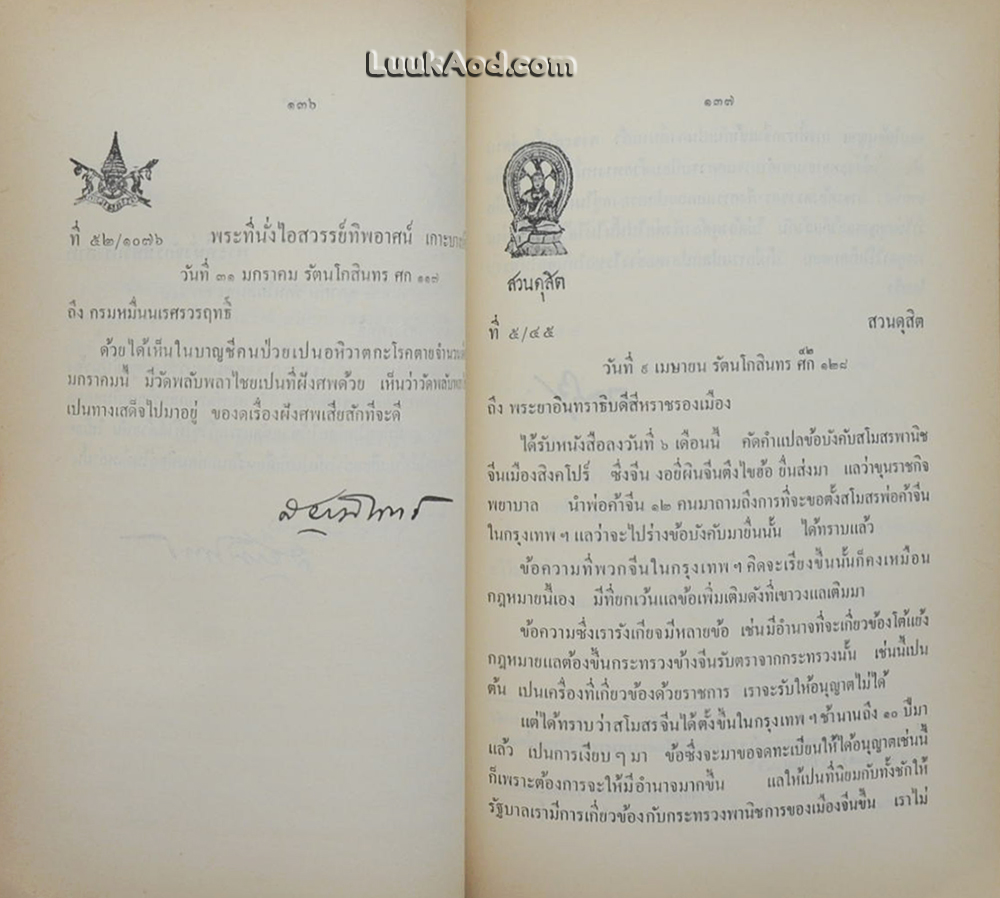 LuukAod.com
๑๓๖
ที่ ๕๒/๑๐๗๖ พระที่นั่งไอสวรรย์ทิพอาศน์ เกาะบาง
วันที่ ๓๑ มกราคม รัตนโกสินทร ศก ๑๑๗
ถึง กรมหมื่นนเรศรวรฤทธิ์
ด้วยได้เห็นในบาญชีคนป่วยเปนอหิวาตกะโรคตายจำนวน
มกราคมนี้ มีวัดพลับพลาไชยเปนที่ฝังศพด้วย เห็นว่าวัดพลับพลา
เปนทางเสด็จไปมาอยู่ ของดเรื่องฝังศพเสียสักทีจะดี
๑๓๗
สวนดุสิต
ที่ ๕/๔๕ สวนดุสิต
วันที่ ๙ เมษายน รัตนโกสินทร ศก ๔๒ ๑๒๘
ถึง พระยาอินทราธิบดีสีหราชรองเมือง
ได้รับหนังสือลงวันที่ ๖ เดือนนี้ คัดคำแปลข้อบังคับสโมสรพานิช
จีนเมืองสิงคโปร์ ซึ่งจีน งอยี่ผินจีนตึงไขฮ้อ ยื่นส่งมา แลว่าขุนราชกิจ
พยาบาล นำพ่อค้าจีน ๑๒ คนมาถามถึงการที่จะขอตั้งสโมสรพ่อค้าจีน
ในกรุงเทพ ฯ แลว่าจะไปร่างข้อบังคับมายื่นนั้น ได้ทราบแล้ว
ข้อความที่พวกจีนในกรุงเทพ ฯ คิดจะเรียงขึ้นนั้นก็คงเหมือน
กฎหมายนี้เอง มีที่ยกเว้นแลข้อเพิ่มเติมดังที่เขาวงแลเติมมา
ข้อความซึ่งเรารังเกียจมีหลายข้อ เช่นมีอำนาจที่จะเกี่ยวข้องโต้แย้ง
กฎหมายแลต้องขึ้นกระทรวงข้างจีนรับตราจากกระทรวงนั้น เช่นนี้เปน
ต้น เปนเครื่องที่เกี่ยวข้องด้วยราชการ เราจะรับให้อนุญาตไม่ได้
แต่ได้ทราบว่าสโมสรจีนได้ตั้งขึ้นในกรุงเทพ ฯ ช้านานถึง ๑๐ ปีมา
แล้ว เปนการเงียบ ๆ มา ข้อซึ่งจะมาขอจดทะเบียนให้ได้อนุญาตเช่นนี้
ก็เพราะต้องการจะให้มีอำนาจมากขึ้น แลให้เปนที่นิยมกับทั้งชักให้
รัฐบาลเรามีการเกี่ยวข้องกับกระทรวงพานิชการของเมืองจีนขึ้น เราไม่